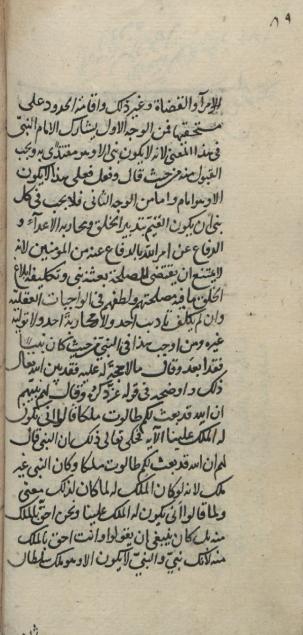 ٨٩
الامرآء والقضاة وغير ذلك واقامة الحدود على
مستحقها فمن الوجه الاول يشارك الامام النبي
في هذا المعنى لانه لا يكون نبي الا وهو مقتدى به ويجب
القبول منه من حيث قال وفعل فعلى هذا لا يكون
الا وهو امام واما من الوجه الثاني فلا يجب في كل
نبي ان يكون القيّم بتدبير الخلق ومحاربة الاعدآء و
الدفاع عن امر الله بالدفاع عنه من المومنين لانه
لا يمتنع ان يقتضي المصلحة بعثة نبي وتكليفه ابلاغ
الخلق ما فيه مصلحتهم ولطفهم في الواجبات العقلية
وان لم يكلف تاديب احد ولا محاربة احد ولا تولية
غيره ومن اوجب هذا في النبي من حيث كان نبيا
فقد ابعد وقال ما لا حجة له عليه فقد بين الله تعالى
ذلك واوضحه في قوله عز ذكره وقال لهم نبيهم
ان الله قد بعث لكم طالوت ملكا قالوا انى يكون
له الملك علينا الآية فحكى تعالى ذلك بان النبي قال
لهم ان الله قد بعث لكم طالوت ملكا وكان النبي غير
ملك لانه لو كان الملك له لما كان لذلك معنى
ولما قالوا انى يكون له الملك علينا ونحن احق بالملك
منه بل كان ينبغي ان يقولوا وانت احق بالملك
منه لانك نبي والنبي لا يكون الا وهو ملك سلطان